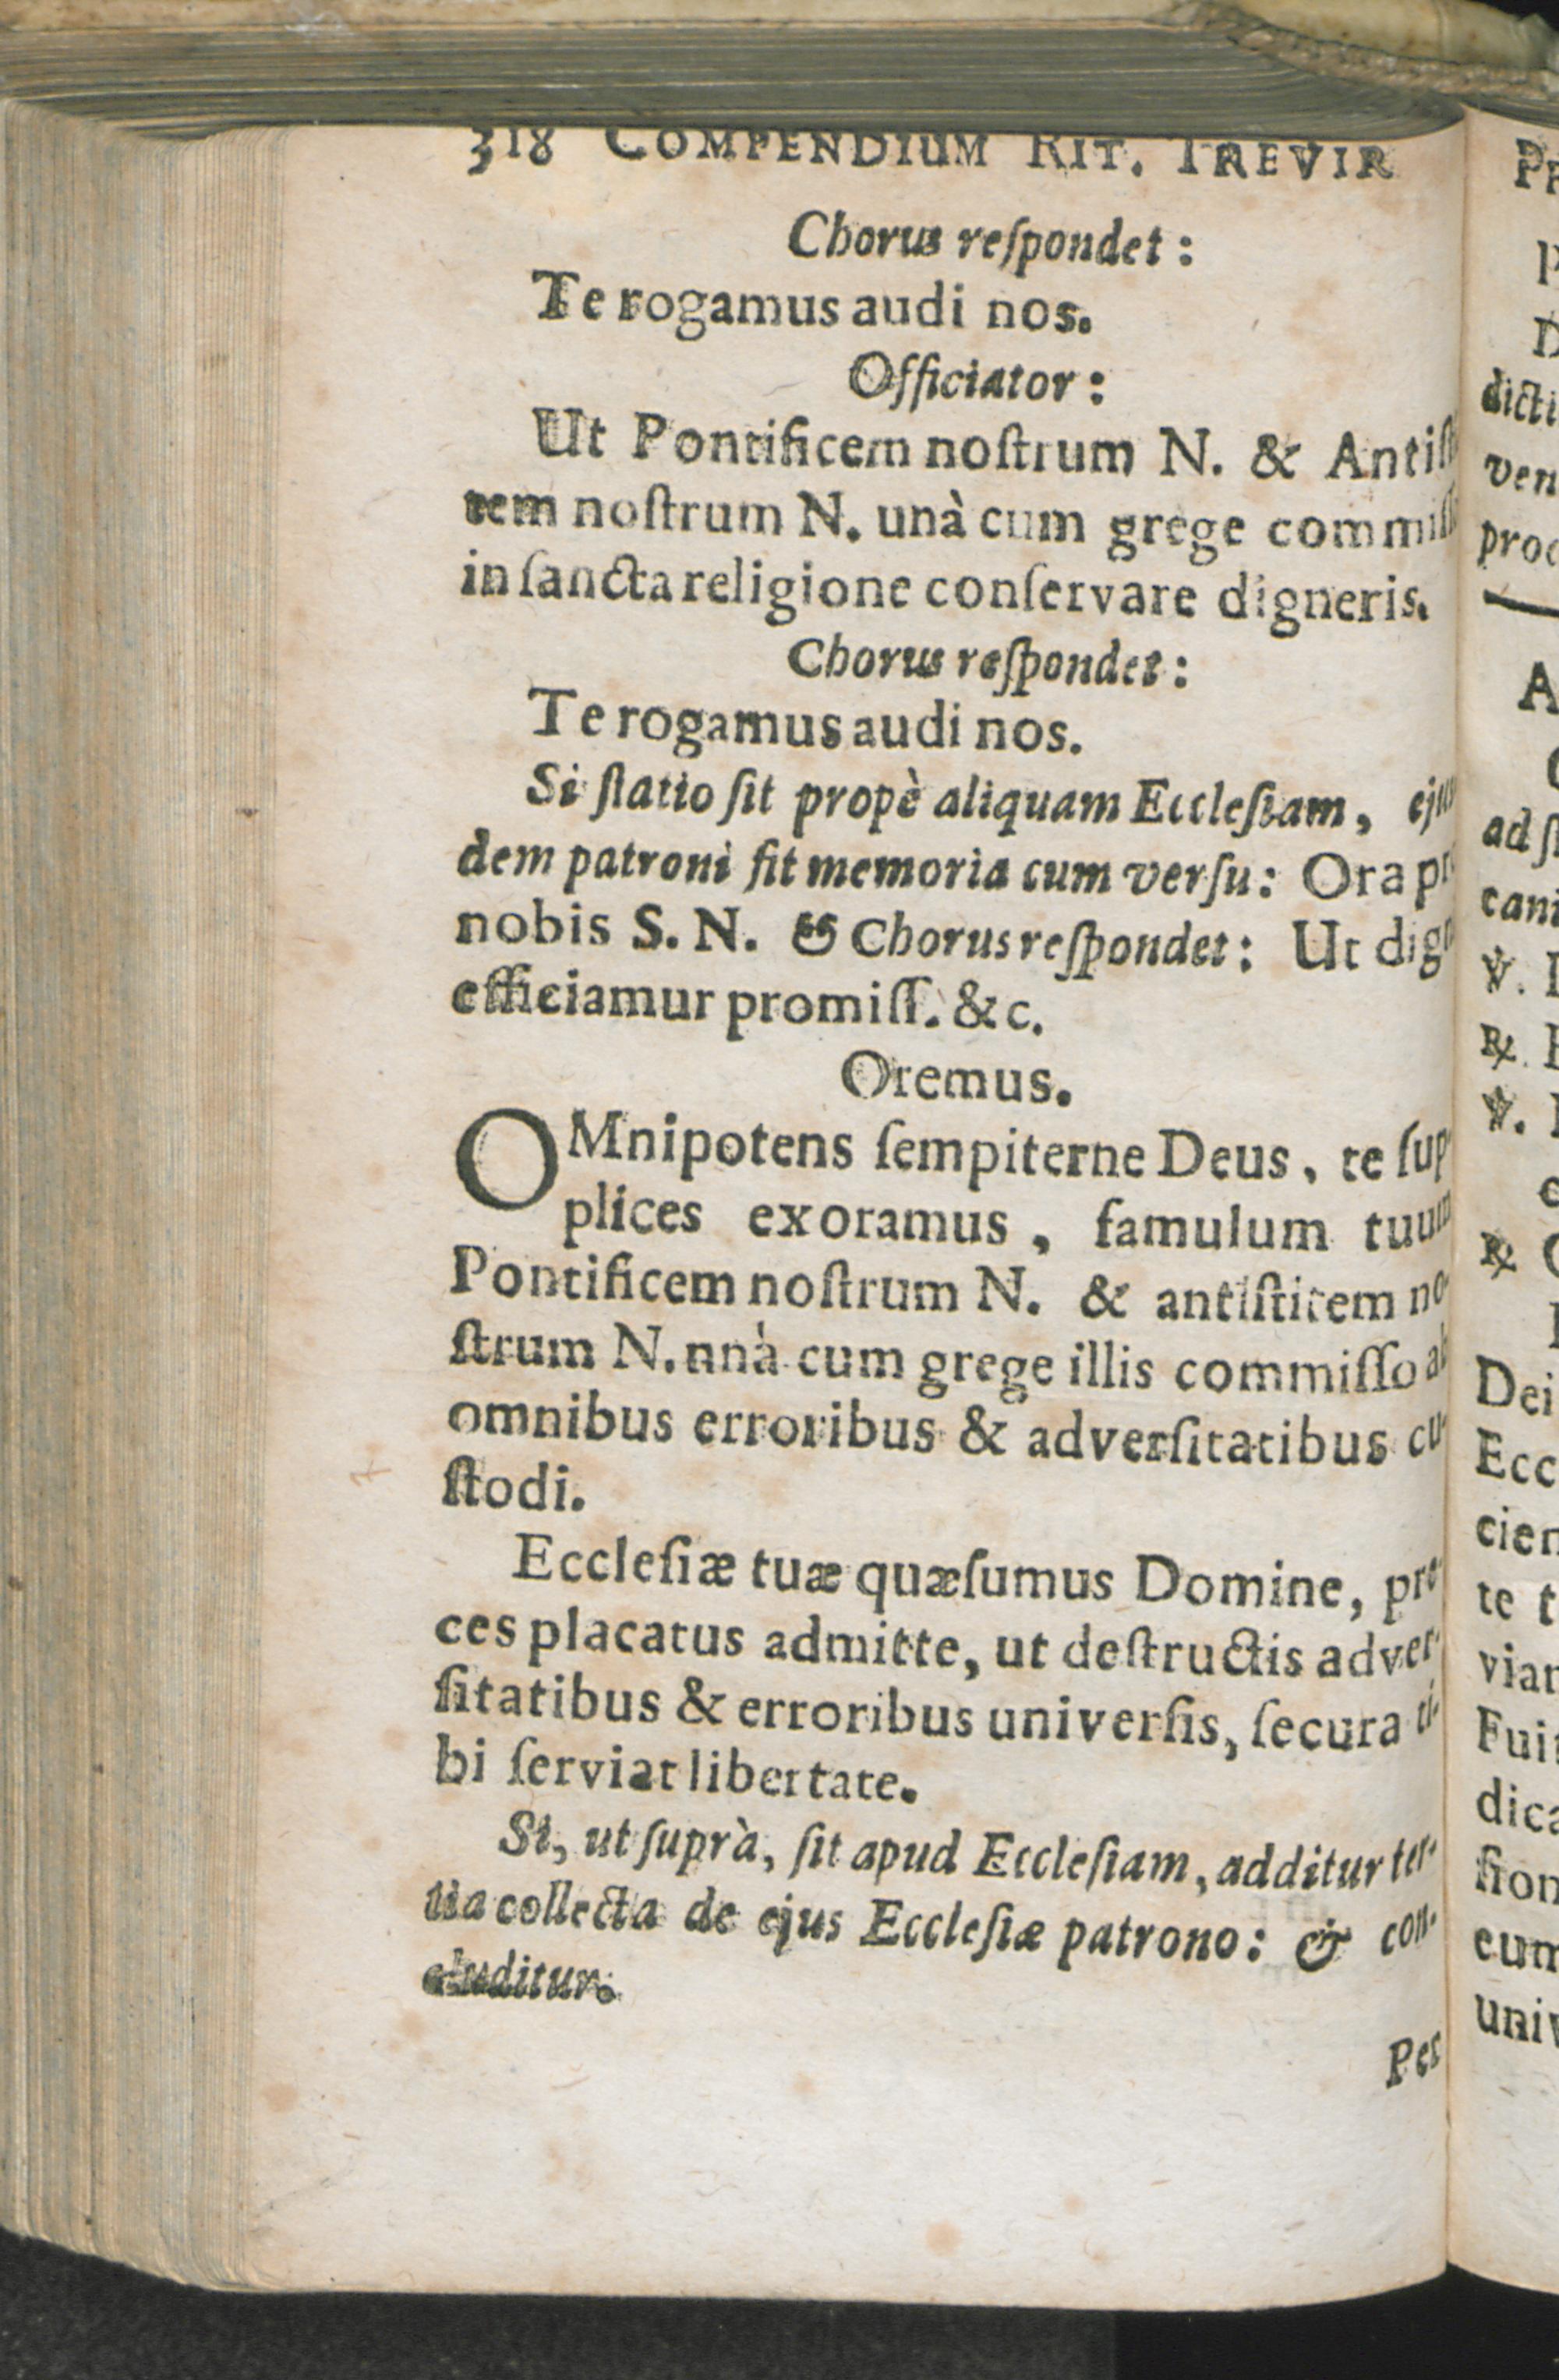 318 COMPENDIUM RIT. TREVIR
Chorus reſpondet :
Te rogamus audi nos.
Officiator :
Ut Pontificem noſtrum N. & Antiſt
tem noſtrum N. unà cum grege commiſſ
in ſancta religione conſervare digneris.
Chorus reſpondet :
Te rogamus audi nos.
Si ſtatio ſit propè aliquam Eccleſiam, ejus
dem patroni fit memoria cum verſu: Ora pr
nobis S. N. & Chorus reſpondet: Ut dign
efficiamur promiſſ. &c.
Oremus.
OMnipotens ſempiterne Deus, te ſup-
plices exoramus, famulum tuum
Pontificem noſtrum N. & antiſtitem no-
ſtrum N. nnà cum grege illis commiſſo ab
omnibus erroribus & adverſitatibus cu-
ſtodi.
Eccleſiæ tuæ quæſumus Domine, pre-
ces placatus admitte, ut deſtructis adver-
ſitatibus & erroribus univerſis, ſecura ti-
bi ſerviat libertate.
Si, ut ſuprà, ſit apud Eccleſiam, additur ter-
tia collecta de ejus Eccleſiæ patrono: & con-
cluditur.
Per
p
D
dicti
ven
proc
A
ad ſt
cani
℣.
℟.
℣.
℟
Dei
Ecc
cien
te t
viar
Fuit
dica
ſion
eum
univ